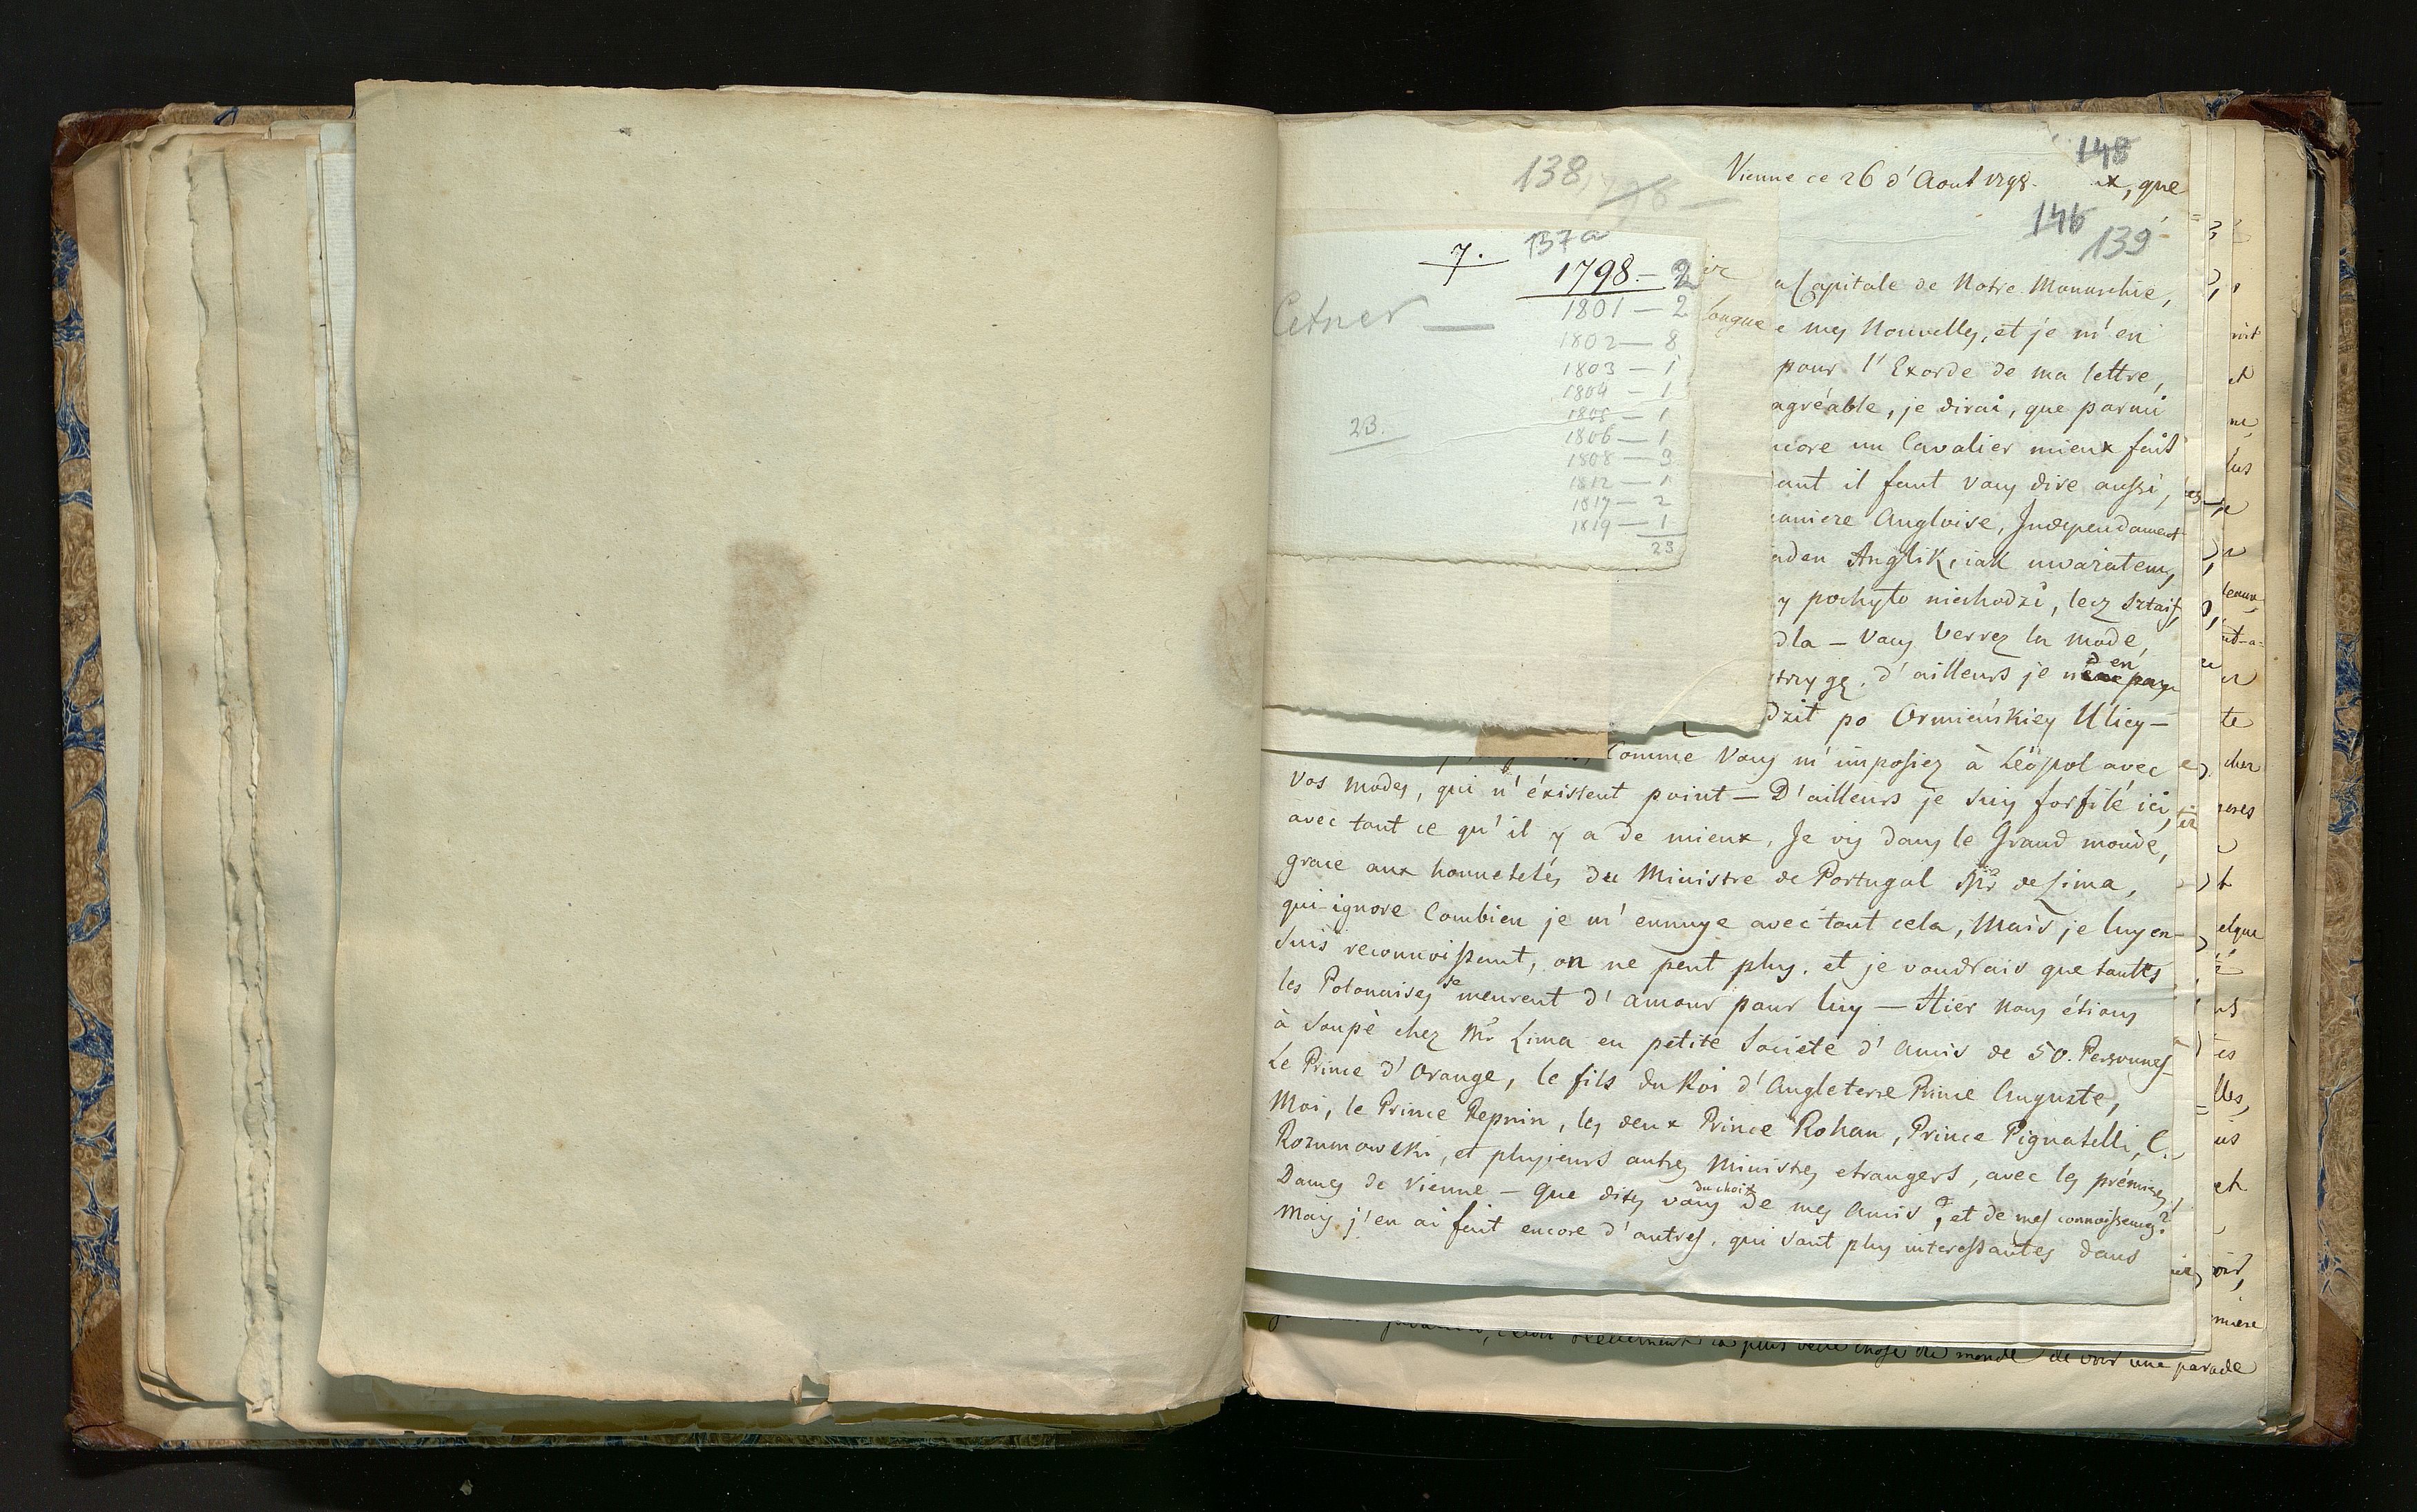 138
Vienne ce 26 d'Aout 1798.
148
, que
146
139
7.
137a
1798 - 2
Cetner —
1801 — 2
1802 — 8
1803 — 1
1804 — 1
1805 — 1
23.
1806 — 1
1808 — 3
1812 — 1
1817 — 2
1819 — 1
23
longue
a Capitale de Notre Monarchie,
e mes Nouvelles, et je m'en
pour l'Exorde de ma lettre,
agréable, je dirai, que parmi
core un Cavalier mieux fait
ant il faut vous dire aussi,
aniere Angloise, Independament
aden Anglik, iak uważałem,
y pochyło niechodzi, lecz sztaif,
dla — vous verrez la mode,
trzygę. d'ailleurs je
dził po Ormieńskiey Ulicy —
Comme vous m'imposiez à Léopol avec
vos modes, qui n'éxistent point — D'ailleurs je suis forfilé ici,
avec tout ce qu'il y a de mieux, Je vis dans le Grand monde,
grace aux honnetetés du Ministre de Portugal Mr de Lima,
qui ignore Combien je m'ennuye avec tout cela, Mais je luy en
suis reconnoissant, on ne peut plus. et je voudrais que toutes
les Polonaises se meurent d'amour pour luy — Hier nous étions
à Soupè chez Mr Lima en petite Societé d'Amis de 50. Personnes
Le Prince d'Orange, le fils du Roi d'Angleterre Prince Auguste,
Moi, le Prince Repnin, les deux Prince Rohan, Prince Pignatelli, C.
Rozumowski, et plusieurs autres Ministres etrangers, avec les prémieres
Dames de Vienne — Que dites vous du choix de mes Amis, et de mes connoissences?
Mais j'en ai fait encore d'autres, qui sont plus interessantes dans
la plus belle chose du monde de voir une parade